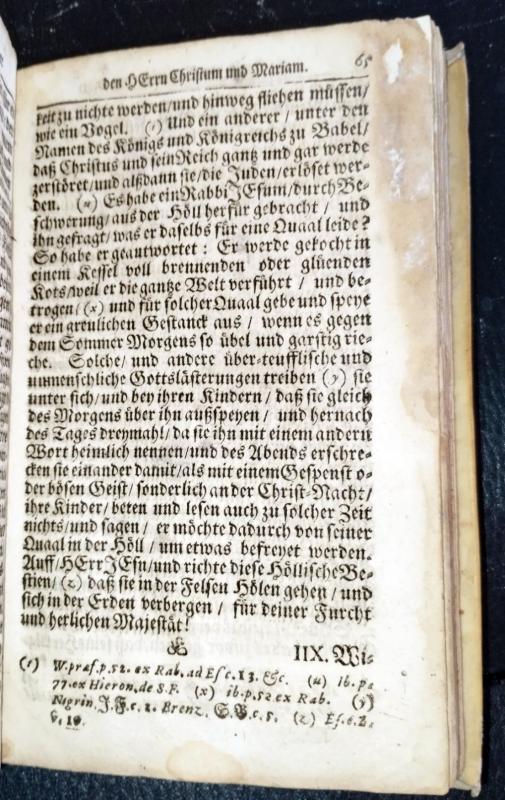 den HErrn Christum und Mariam. 65
keit zu nichte werden/und hinweg fliehen müssen/
wie ein Vogel. (t) Und ein anderer/ unter den
Namen des Königs und Königreichs zu Babel/
daß Christus und sein Reich gantz und gar werde
zerstöret/und alßdann sie/die Juden/erlöset wer-
den. (u) Es habe ein Rabbi JEsum/durch Be-
schwerung/aus der Höll herfür gebracht/ und
ihn gefragt/was er daselbs für eine Quaal leide?
So habe er geantwortet: Er werde gekocht in
einem Kessel voll brennenden oder glüenden
Kots/weil er die gantze Welt verführt/ und be-
trogen/(x) und für solcher Quaal gebe und speye
er ein greulichen Gestanck aus/ wenn es gegen
dem Sommer Morgens so übel und garstig rie-
che. Solche/ und andere über-teufflische und
unmenschliche Gottslästerungen treiben (y) sie
unter sich/und bey ihren Kindern/ daß sie gleich
des Morgens über ihn außspeyen/ und hernach
des Tages dreymahl/da sie ihn mit einem andern
Wort heimlich nennen/und des Abends erschre-
cken sie einander damit/als mit einem Gespenst o-
der bösen Geist/ sonderlich an der Christ-Nacht/
ihre Kinder/ beten und lesen auch zu solcher Zeit
nichts/und sagen/ er möchte dadurch von seiner
Quaal in der Höll/ um etwas befreyet werden.
Auff/HErr JEsu/und richte diese Höllische Be-
stien/(z) daß sie in der Felsen Hölen gehen/ und
sich in der Erden verbergen/ für deiner Furcht
und herlichen Majestät!
IIX. Wi-
W. præf. p. 52. ex Rab. ad Esc. 13. &c. (u) ib. p.
77. ex Hieron. de S.F. (x) ib. p. 52 ex Rab. (y)
Nigrin. J.F. c. 2. Brenz. S.B. c. 5. (z) Es. c. 2.
v. 19.